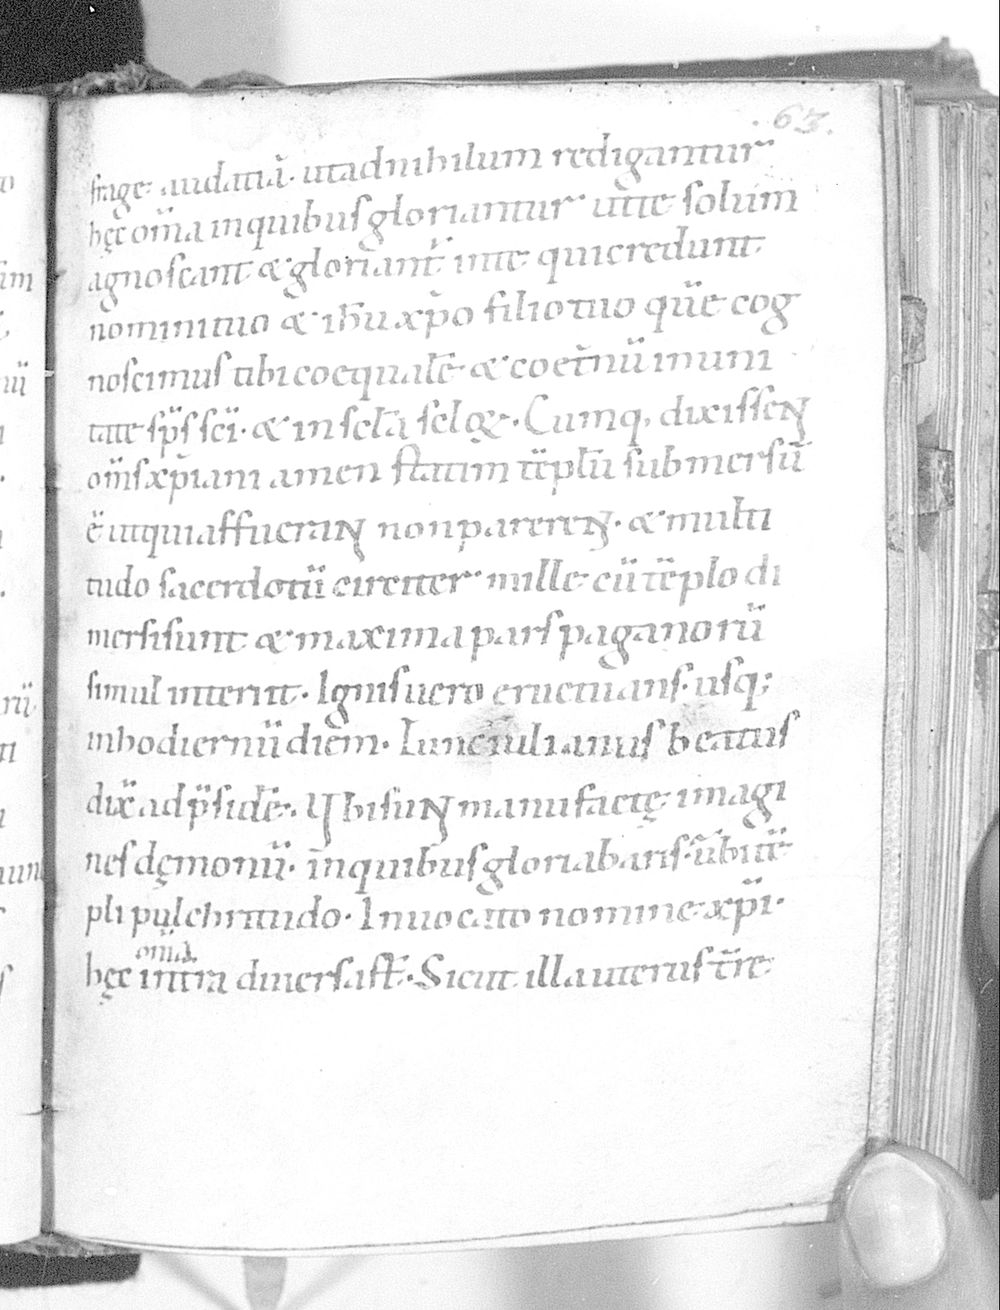 .63.
frage· audatiā· utadnihilum redigantur
hęc om̄a inquibusgloriantur utte solum
agnoscant &gloriant̄ inte quicredunt
nominituo & ih̄u xp̄o filiotuo quē cog
noscimus tibicoequalē· & coet̄nū inuni
tate sp̄s sc̄i· & in sclā sclo℞· Cumq, dixissent
om̄s xp̄iani amen statim tēplū submersū
ē utquiaffuerant nonparerent· & multi
tudo sacerdotū circiter mille· cū tēplo di
mersisunt & maxima pars paganorū
simul interiit· Ignisuero eructuans· usq;
inhodiernū diem· Tunc iulianus beatus
dix̄ adp̄sidē· Vbisunt manufactę imagi
nes dęmonū· inquibusgloriabaris· ubi tē
pli pulchritudo· Inuocato nomine xp̄i·
om̄ia
hęc intra diuersast̄· Sicut illauterus t̄re